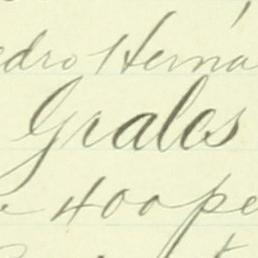 edro Herna
Grales
400 pe